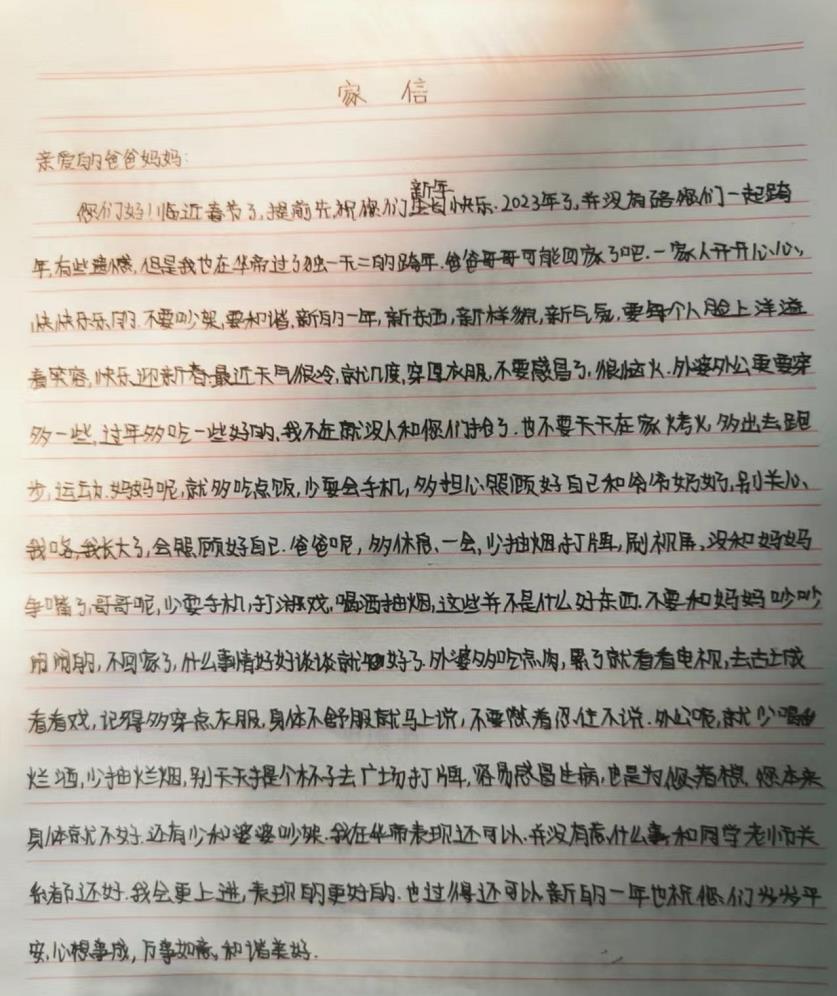 家 信
亲爱的爸爸妈妈:
您们好!临近春节了,提前先祝您们新年快乐.2023年了,并没有陪您们一起跨
年,有些遗憾,但是我也在华帝过了独一无二的跨年.爸爸哥哥可能回家了吧.一家人开开心心,
快快乐乐的.不要吵架,要和谐,新的一年,新东西,新样貌,新气氛,要每个人脸上洋溢
着笑容,快乐迎新春.最近天气很冷,就几度,穿厚衣服,不要感冒了,很恼火.外婆外公更要穿
多一些,过年多吃一些好的,我不在就没人和您们抢了.也不要天天在家烤火,多出去跑
步,运动.妈妈呢,就多吃点饭,少耍会手机,多担心照顾好自己和爷爷奶奶,别关心
我咯,我长大了,会照顾好自己.爸爸呢,多休息一会,少抽烟打牌,刷视屏,没和妈妈
争嘴了,哥哥呢,少耍手机,打游戏,喝酒抽烟,这些并不是什么好东西.不要和妈妈吵吵
闹闹的,不回家了,什么事情好好谈谈就好了.外婆多吃点肉,累了就看看电视,去古城
看看戏,记得多穿点衣服,身体不舒服就马上说,不要憋着忍住不说.外公呢,就少喝
烂酒,少抽烂烟,别天天提个杯子去广场打牌,容易感冒生病,也是为您着想,您本来
身体就不好.还有少和婆婆吵架.我在华帝表现还可以.并没有惹什么事和同学老师关
系都还好.我会更上进,表现的更好的.也过得还可以新的一年也祝您们岁岁平
安,心想事成,万事如意,和谐美好.